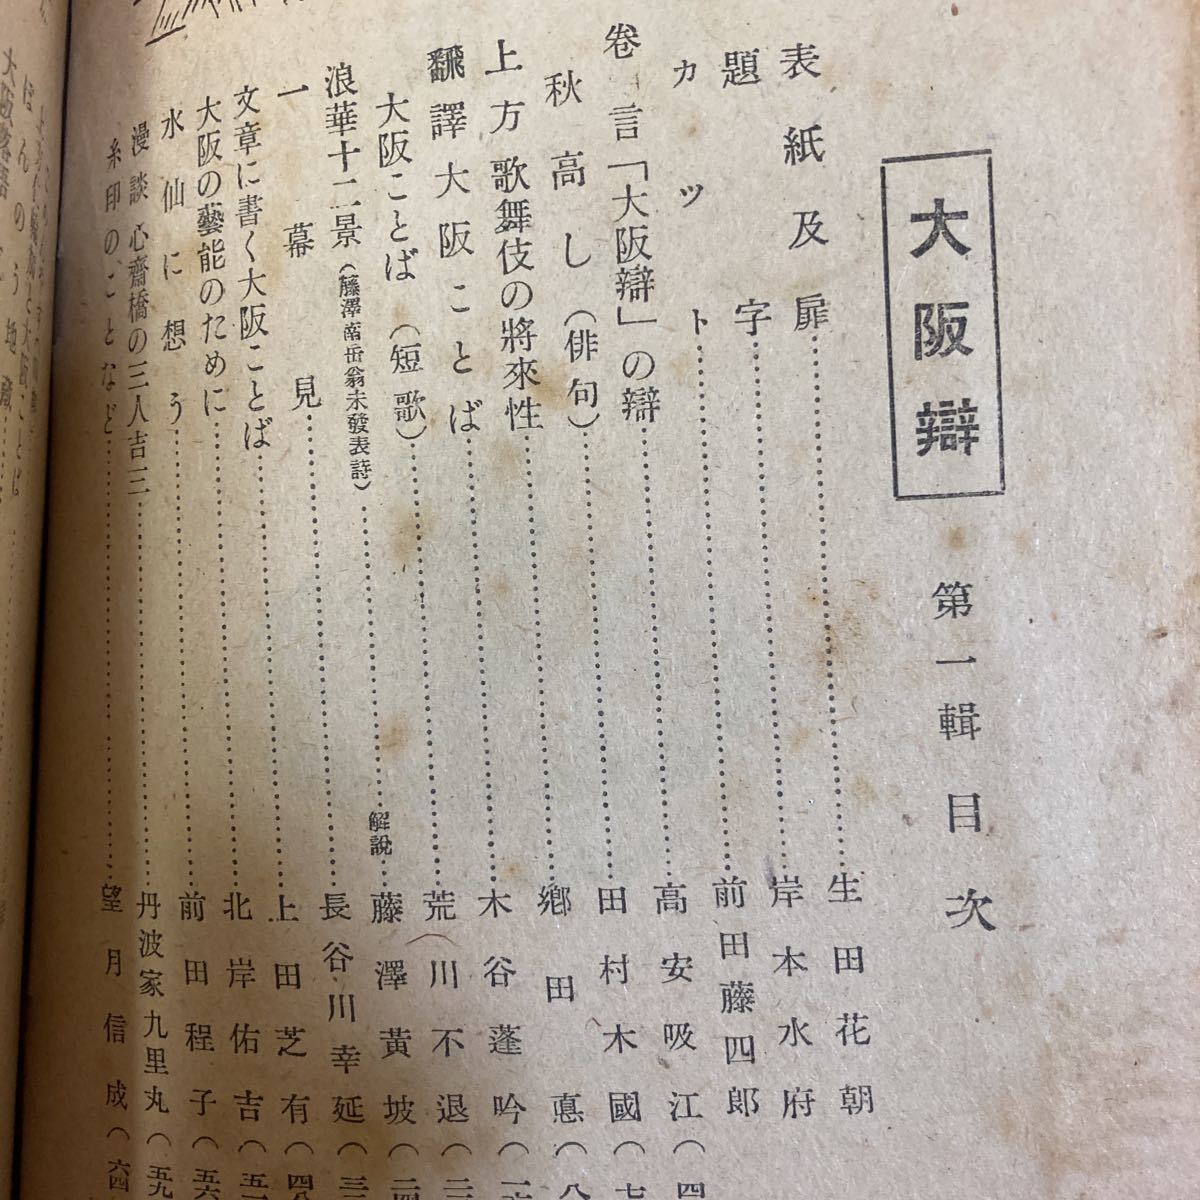 大阪辯
第一輯目次
表紙及扉……生田花朝
題字……岸本水府
カット……前田藤四郎
卷言「大阪辯」の辯……高安吸江（四
秋高し（俳句）……田村木國（七
上方歌舞伎の將來性……鄕田悳（八
飜譯大阪ことば……木谷蓬吟（一
大阪ことば（短歌）……荒川不退（二
浪華十二景（藤澤南岳翁未發表詩）……解說…藤澤黃坡（二四
一幕見……長谷川幸延（三
文章に書く大阪ことば……上田芝有（四八
大阪の藝能のために……北岸佑吉（五
水仙に想う……前田程子（五六
漫談心齋橋の三人吉三……丹波家九里丸（五九
糸印のことなど……望月信成（六四
大阪落語